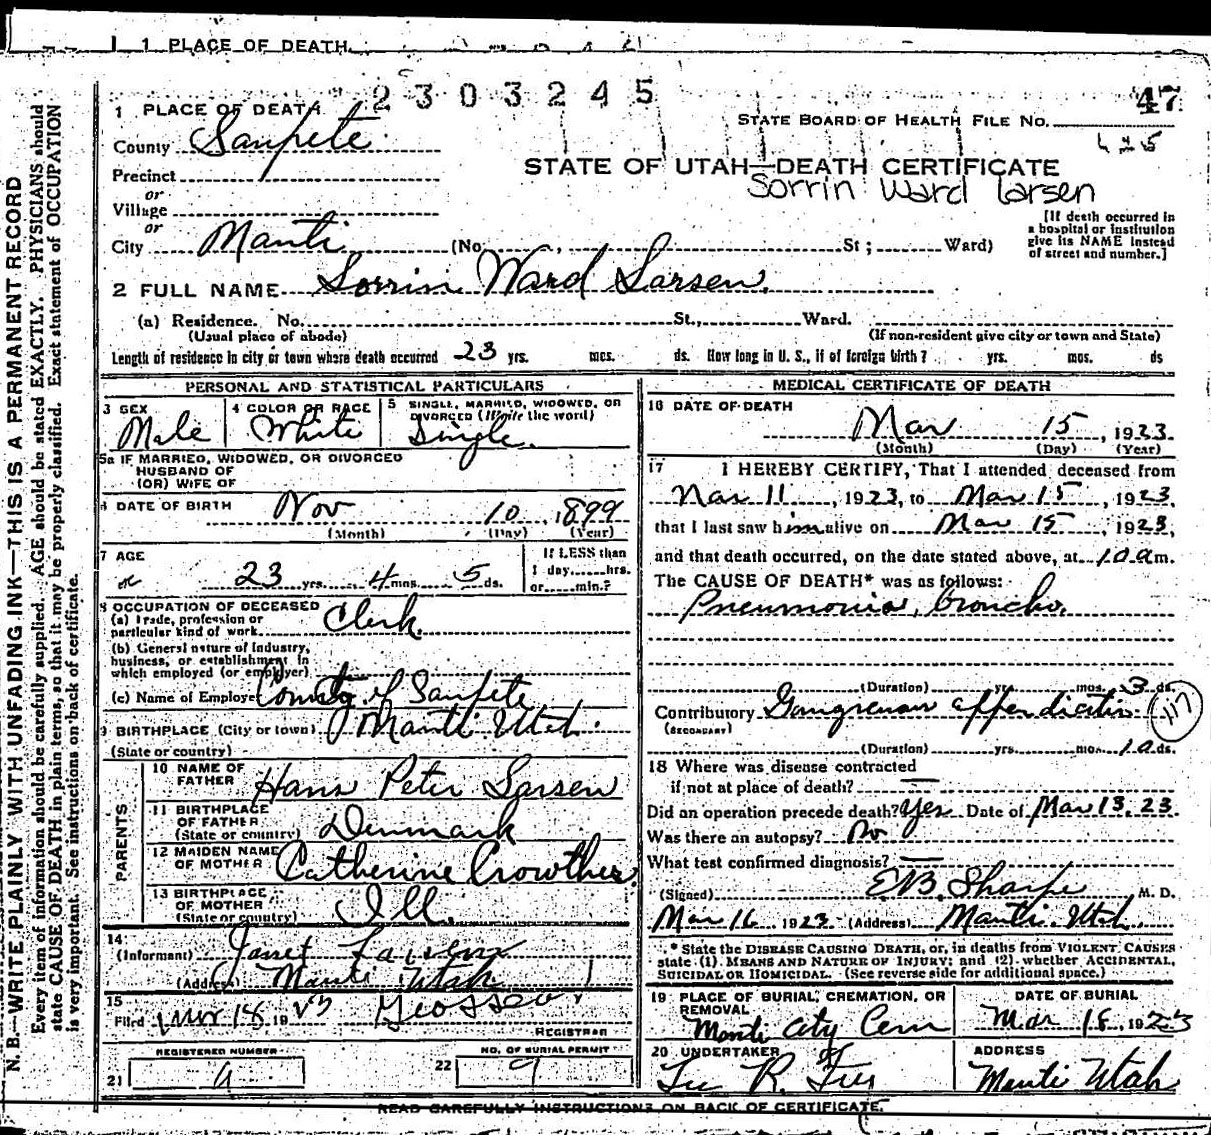 1 PLACE OF DEATH
2303245
47
1 PLACE OF DEATH
STATE BOARD OF HEALTH FILE NO.
County Sanpete
STATE OF UTAH—DEATH CERTIFICATE
Precinct
Sorrin Ward Larsen
or
Village
or
[If death occurred in a hospital or institution give its NAME instead of street and number.]
City Manti (No. St; Ward)
2 FULL NAME Lorrin Ward Larsen
(a) Residence. No. St., Ward.
(Usual place of abode) (If non-resident give city or town and State)
Length of residence in city or town where death occurred 23 yrs. mos. ds. How long in U. S., if of foreign birth? yrs. mos. ds
PERSONAL AND STATISTICAL PARTICULARS
3 SEX Male
4 COLOR OR RACE White
5 SINGLE, MARRIED, WIDOWED, OR DIVORCED (Write the word) Single
5a IF MARRIED, WIDOWED, OR DIVORCED
HUSBAND OF
(OR) WIFE OF
6 DATE OF BIRTH Nov 10, 1899
(Month) (Day) (Year)
7 AGE 23 yrs. 4 mos. 5 ds.
If LESS than
1 day......hrs.
or......min.?
8 OCCUPATION OF DECEASED
(a) Trade, profession or
particular kind of work Clerk
(b) General nature of industry,
business, or establishment in
which employed (or employer)
(c) Name of Employer County of Sanpete
9 BIRTHPLACE (City or town) Manti Utah
(State or country)
PARENTS
10 NAME OF FATHER Hans Peter Larsen
11 BIRTHPLACE OF FATHER (State or country) Denmark
12 MAIDEN NAME OF MOTHER Catherine Crowther
13 BIRTHPLACE OF MOTHER (State or country) Ill.
14
(Informant) Janet Larsen
(Address) Manti Utah
15
Filed Mar 18 1923
REGISTRAR
REGISTERED NUMBER
21 9
NO. OF BURIAL PERMIT
22 9
MEDICAL CERTIFICATE OF DEATH
16 DATE OF DEATH
Mar 15, 1923
(Month) (Day) (Year)
17 I HEREBY CERTIFY, That I attended deceased from
Mar 11, 1923, to Mar 15, 1923,
that I last saw him alive on Mar 15, 1923,
and that death occurred, on the date stated above, at 10 a m.
The CAUSE OF DEATH* was as follows:
Pneumonia, broncho.
(Duration) yrs. mos. 3 ds.
Contributory Gangrenous appendicitis 117
(SECONDARY)
(Duration) yrs. mos. 10 ds.
18 Where was disease contracted
if not at place of death? —
Did an operation precede death? Yes Date of Mar 13, 23
Was there an autopsy? No
What test confirmed diagnosis? —
(Signed) E.B. Sharpe M. D.
Mar 16 1923 (Address) Manti Utah
* State the DISEASE CAUSING DEATH, or, in deaths from VIOLENT CAUSES
state (1) MEANS AND NATURE OF INJURY; and (2) whether ACCIDENTAL,
SUICIDAL OR HOMICIDAL. (See reverse side for additional space.)
19 PLACE OF BURIAL, CREMATION, OR REMOVAL
Manti City Cem
DATE OF BURIAL
Mar 18, 1923
20 UNDERTAKER
ADDRESS
Manti Utah
READ CAREFULLY INSTRUCTIONS ON BACK OF CERTIFICATE.
N. B.—WRITE PLAINLY WITH UNFADING INK—THIS IS A PERMANENT RECORD
Every item of information should be carefully supplied. AGE should be stated EXACTLY. PHYSICIANS should
state CAUSE OF DEATH in plain terms, so that it may be properly classified. Exact statement of OCCUPATION
is very important. See instructions on back of certificate.